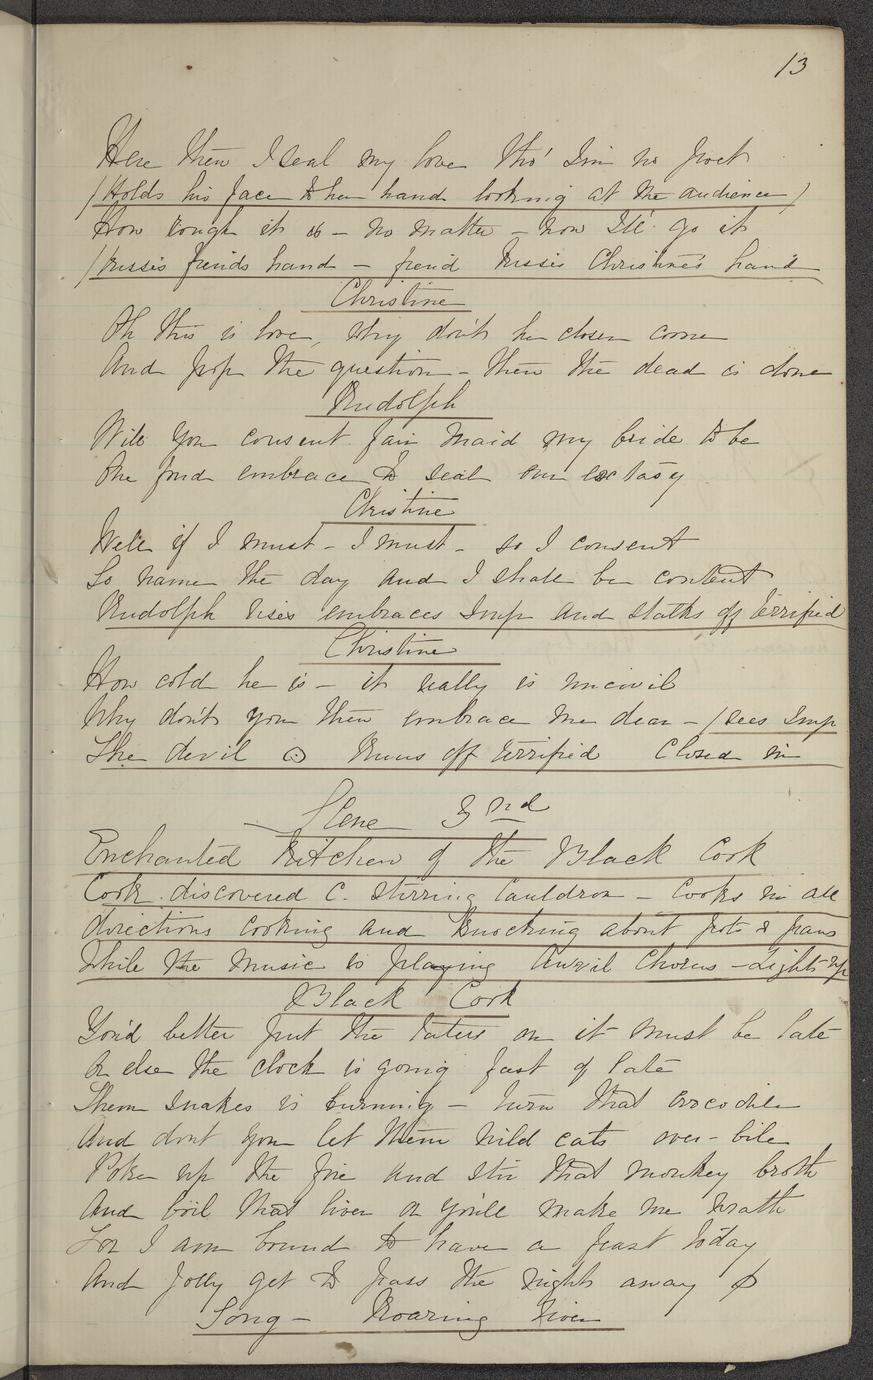 13
Here then I seal my love tho' I'm no poet
(Holds his face to her hand looking at the audience)
How rough it is - no matter - now I'll go it
(Kisses fiends hand - fiend kisses Christine's hand
Christine
Oh this is love, why don't he closer come
And pop the question - then the dead is done
Rudolph
Will you consent fair maid my bride to be
One fond embrace to seal our ecstasy
Christine
Well if I must - I must - so I consent
So name the day and I shall be content
Rudolph rises embraces Imp and stalks off terrified
Christine
How cold he is - it really is uncivil
Why don't you then embrace me dear - (sees Imp
The devil Runs off terrified Closed in
Scene 3rd
Enchanted Kitchen of the Black Cook
Cook discovered C. stirring Cauldron - Cooks in all
directions cooking and knocking about pots & pans
While the music is playing Anvil Chorus - Lights up
Black Cook
You'd better put the taters on it must be late
Or else the clock is going fast of late
Them snakes is burning - turn that crocodile
And dont you let them wild cats over-bile
Poke up the fire and stir that monkey broth
And boil that liver or you'll make me wrath
For I am bound to have a feast today
And jolly get to pass the night away
Song - Roaring River